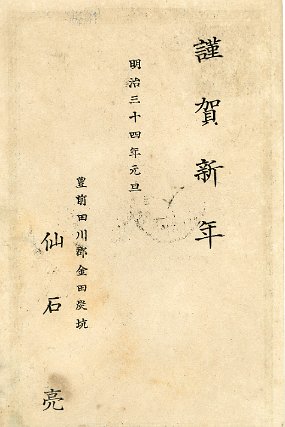 謹賀新年
明治三十四年元旦
豊前田川郡金田炭坑
仙石亮